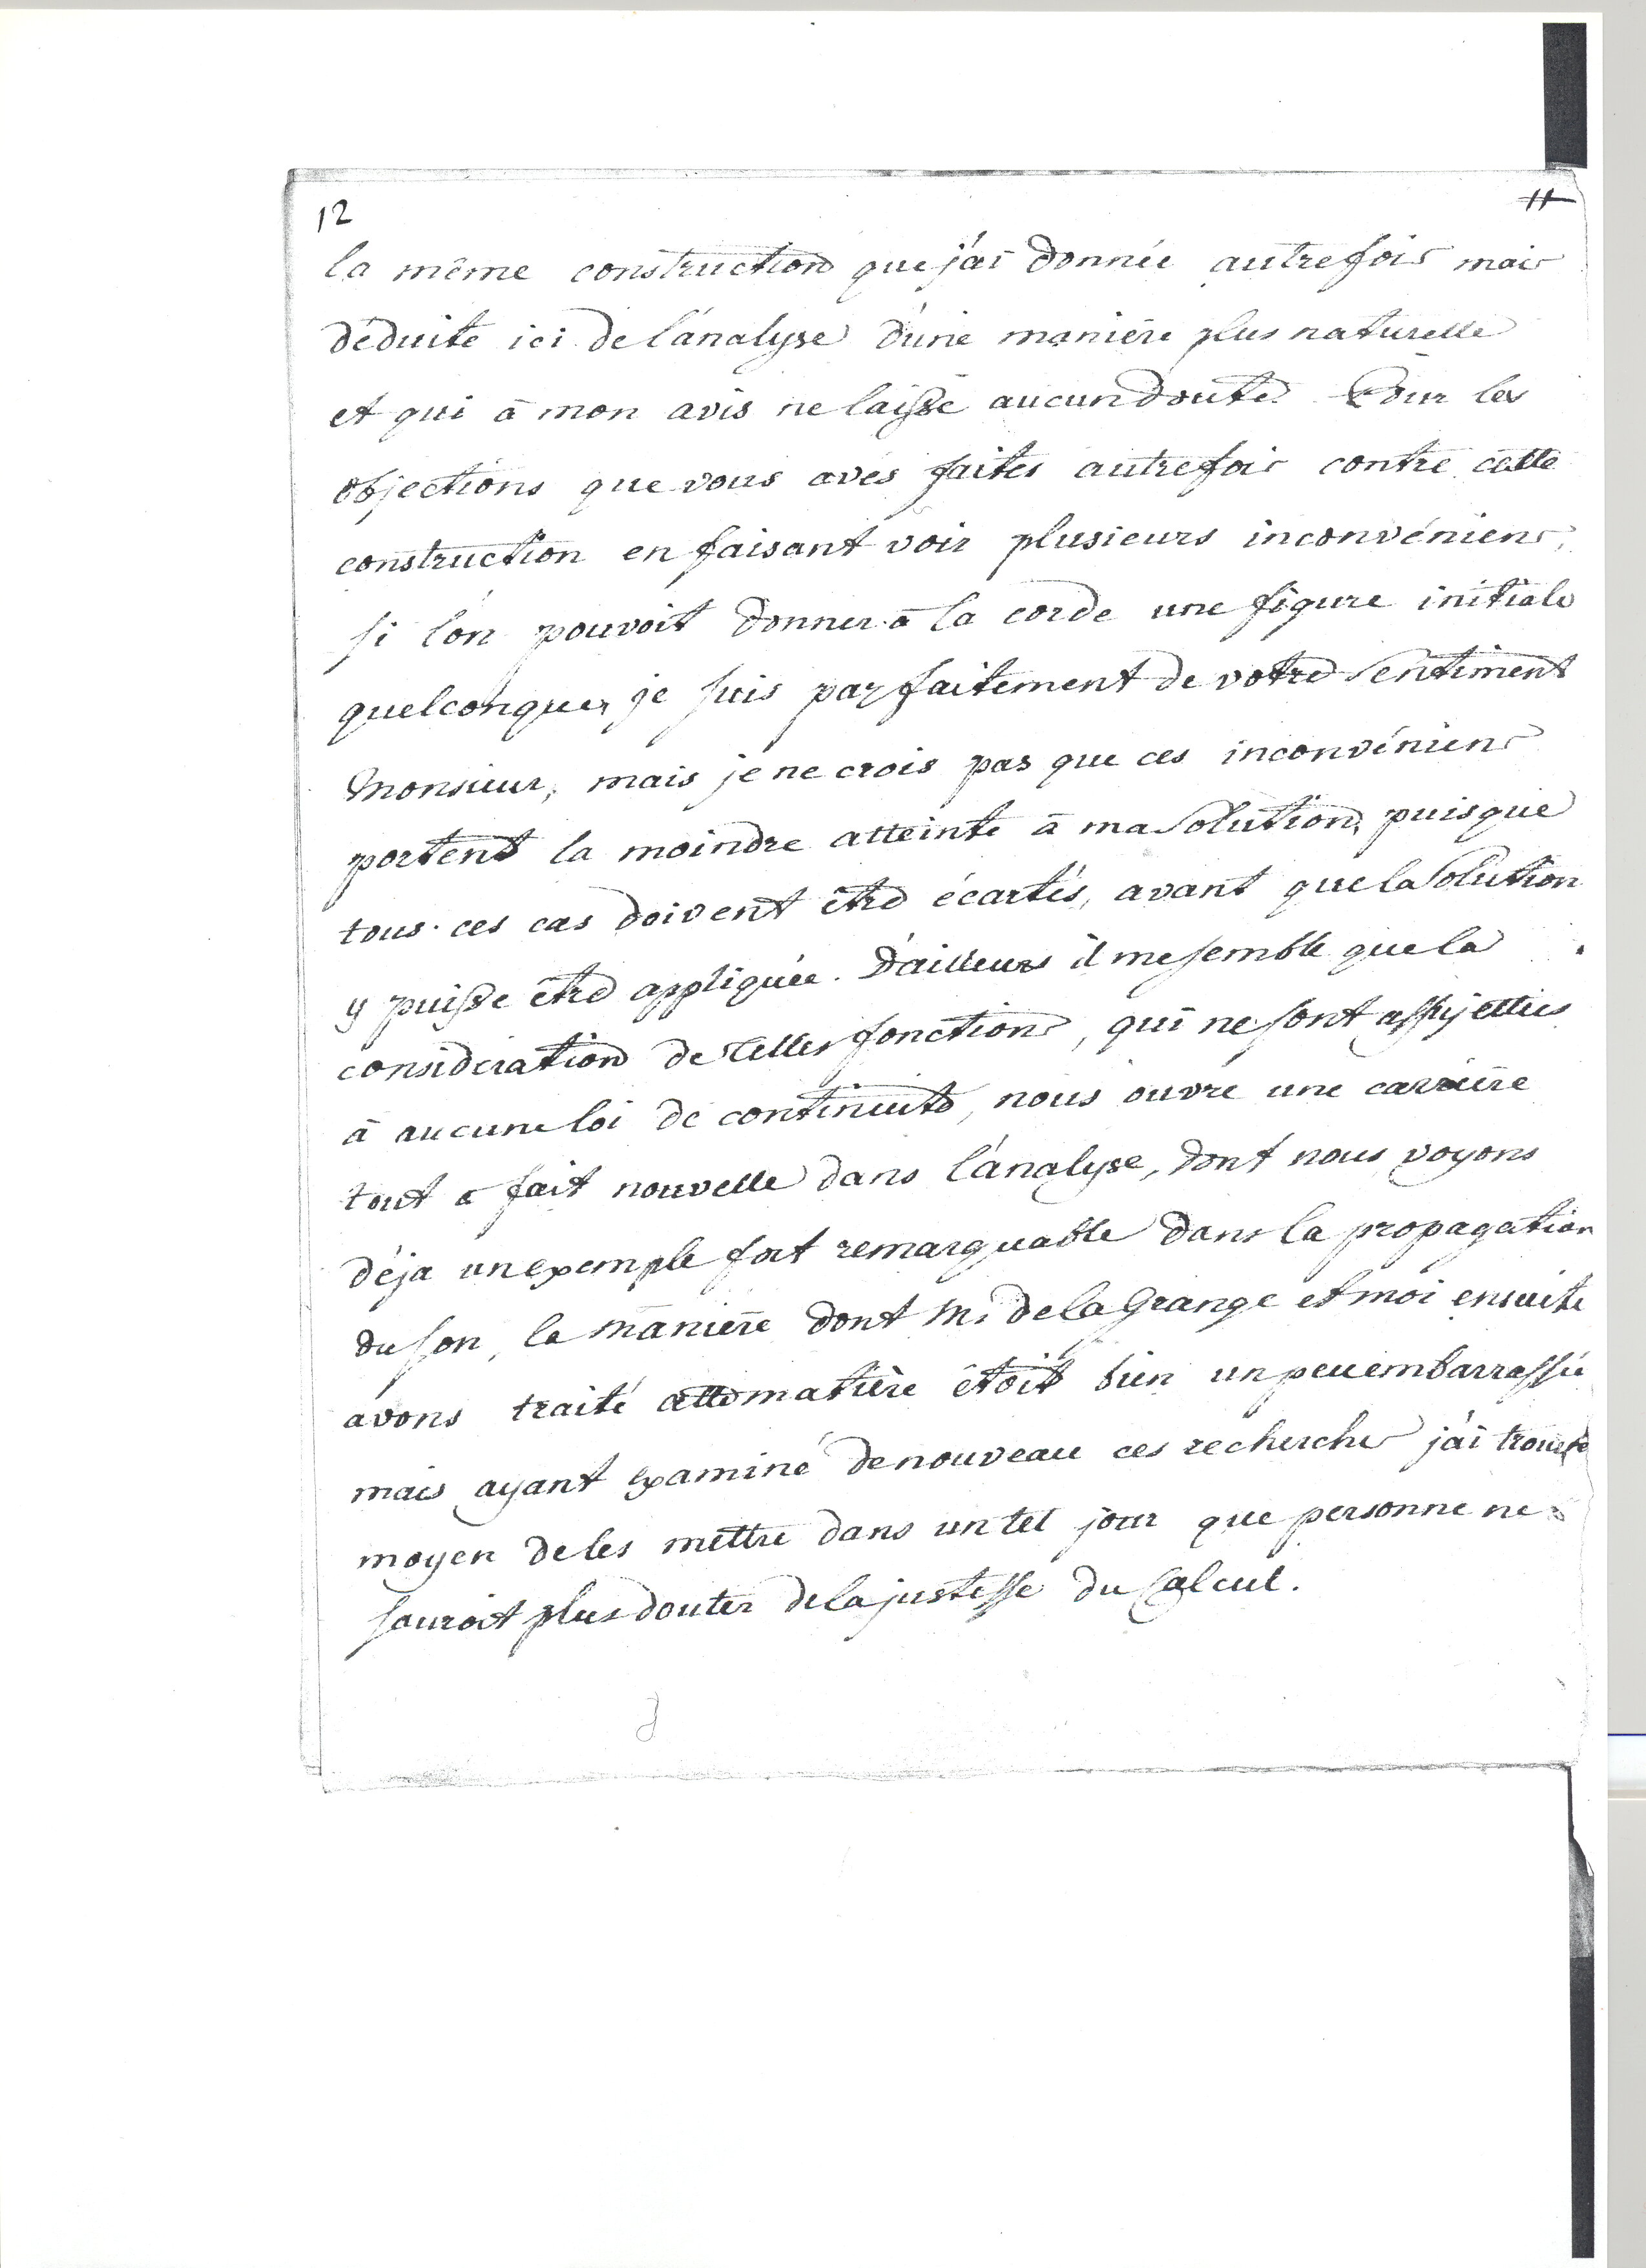 12
11
la même construction que j'ai donnée autrefois mais
déduite ici de l'analyse d'une manière plus naturelle
et qui à mon avis ne laisse aucun doute. Pour les
objections que vous avés faites autrefois contre cette
construction en faisant voir plusieurs inconvéniens,
si l'on pouvoit donner à la corde une figure initiale
quelconque, je suis parfaitement de votre sentiment
Monsieur, mais je ne crois pas que ces inconvéniens
portent la moindre atteinte à ma solution, puisque
tous ces cas doivent être écartés, avant que la solution
y puisse être appliquée. D'ailleurs il me semble que la
considération de telles fonctions, qui ne sont assujetties
à aucune loi de continuité, nous ouvre une carrière
tout a fait nouvelle dans l'analyse, dont nous voyons
déja un exemple fort remarquable dans la propagation
du son, la manière dont M. de la Grange et moi ensuite
avons traité cette matière étoit bien un peu embarrassée
mais ayant examiné de nouveau ces recherches j'ai trouvé le
moyen de les mettre dans un tel jour que personne ne
sauroit plus douter de la justesse du Calcul.